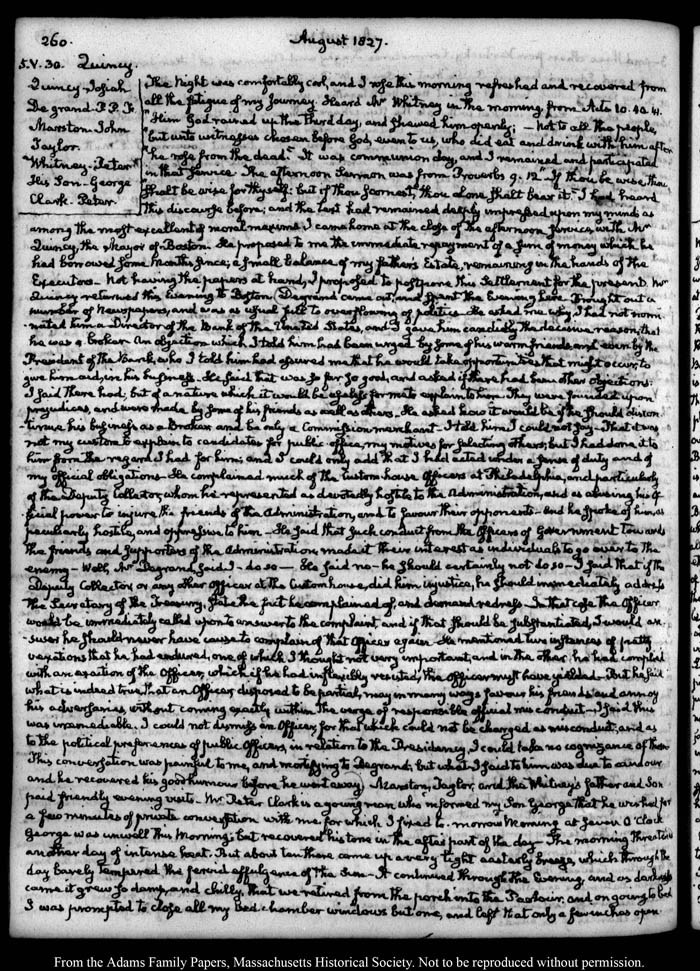 260.
August 1827.
5. V. 30. Quincy.
Quincy-Josiah
Degrand-P.P.F.
Marston-John
Taylor.
Whitney-Peter
His Son-George
Clark-Peter.
The Night was comfortably cool, and I rose this morning refreshed and recovered from
all the fatigue of my Journey. Heard Mr Whitney in the morning from Acts 10. 40. 41.
"Him God raised up the third day, and shewed him openly; — not to all the people,
"but unto witnesses chosen before God, even to us, who did eat and drink with him after
"he rose from the dead." It was communion day, and I remained and participated
in that service. The afternoon Sermon was from Proverbs 9. 12. "If thou be wise thou
shalt be wise for thyself: but if thou scornest, thou alone shalt bear it." I had heard
this discourse before; and the text had remained deeply impressed upon my mind as
among the most excellent of moral maxims. I came home at the close of the afternoon service, with Mr
Quincy, the Mayor of Boston. He proposed to me the immediate repayment of a sum of money which he
had borrowed some Months since; a small balance of my father's Estate, remaining in the hands of the
Executors. Not having the papers at hand, I proposed to postpone this Settlement for the present. Mr
Quincy returned this Evening to Boston. Degrand came out, and spent the Evening here. Brought out a
number of Newspapers, and was as usual full to overflowing of politics. He asked me why I had not nomi-
nated him a Director of the Bank of the United States, and I gave him candidly the decisive reason, that
he was a broker. An objection which I told him had been urged by some of his warm friends and even by the
President of the Bank, who I told him had assured me that he would take opportunities that might occur, to
give him aid, in his business. He said that was so far so good, and asked if there had been other objections.
I said there had, but of a nature which it would be useless for me to explain to him. They were founded upon
prejudices, and were made by some of his friends as well as others. He asked how it would be if he should discon-
tinue his business as a Broker and be only a Commission merchant. I told him I could not say. That it was
not my custom to explain to candidates for public office, my motives for selecting others; but I had done it to
him from the regard I had for him; and I could only add that I had acted under a sense of duty and of
my official obligations. He complained much of the Custom house Officers at Philadelphia, and particularly
of the Deputy Collector, whom he represented as devotedly hostile to the Administration, and as abusing his of-
ficial power to injure the friends of the Administration, and to favour their opponents. And he spoke of him, as
peculiarly hostile, and oppressive to him. He said that such conduct from the Officers of Government towards
the friends and supporters of the Administration, made it their interest as individuals to go over to the
enemy. Well, Mr Degrand, said I - do so — He said no - he should certainly not do so - I said that if the
Deputy Collector, or any other Officer at the Custom house, did him injustice, he should immediately address
the Secretary of the Treasury, state the fact he complained of, and demand redress. In that case the Officer
would be immediately called upon to answer to the complaint, and if that should be substantiated, I would an-
swer he should never have cause to complain of that Officer again. He mentioned two instances of petty
vexations that he had endured, one of which I thought not very important, and in the other, he had complied
with an exaction of the Officer, which if he had inflexibly resisted, the Officer must have yielded. But he said
what is indeed true, that an Officer disposed to be partial, may in many ways favour his friends and annoy
his adversaries, without coming exactly within the verge of responsible official misconduct. I said this
was irremediable. I could not dismiss an Officer, for that which could not be charged as misconduct, and as
to the political preferences of public Officers, in relation to the Presidency, I could take no cognizance of them
This conversation was painful to me, and mortifying to Degrand; but what I said to him was due to candour
and he recovered his good humour before he went away. Marston, Taylor, and the Whitney's father and Son
paid friendly evening visits. Mr Peter Clark is a young man who informed my Son George that he wished for
a few minutes of private conversation with me, for which I fixed to-morrow Morning at seven O'Clock
George was unwell this Morning; but recovered his tone in the after part of the day. The morning threatened
another day of intense heat. But about ten there came up a very light easterly breeze, which through the
day barely tempered the fervid effulgence of the Sun. It continued through the Evening, and as darkness
came it grew so damp, and chilly, that we retired from the porch into the Parlour, and on going to bed
I was prompted to close all my bed chamber windows but one, and left that only a few inches open
From the Adams Family Papers, Massachusetts Historical Society. Not to be reproduced without permission.